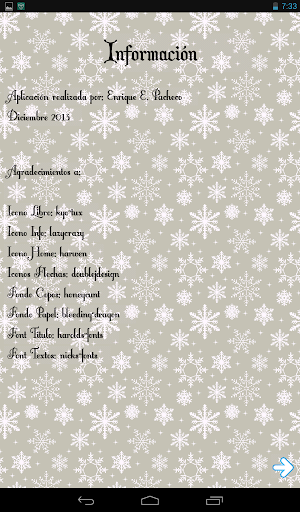 7:33
Información
Aplicación realizada por: Enrique E. Pacheco
Diciembre 2013
Agradecimientos a:
Icono Libro: kyo-tux
Icono Info: lazycrazy
Icono Home: harwen
Iconos Flechas: doublejdesign
Fondo Copos: honeyaunt
Fondo Papel: bleeding-dragon
Font Titulo: harolds-fonts
Font Textos: nicks-fonts